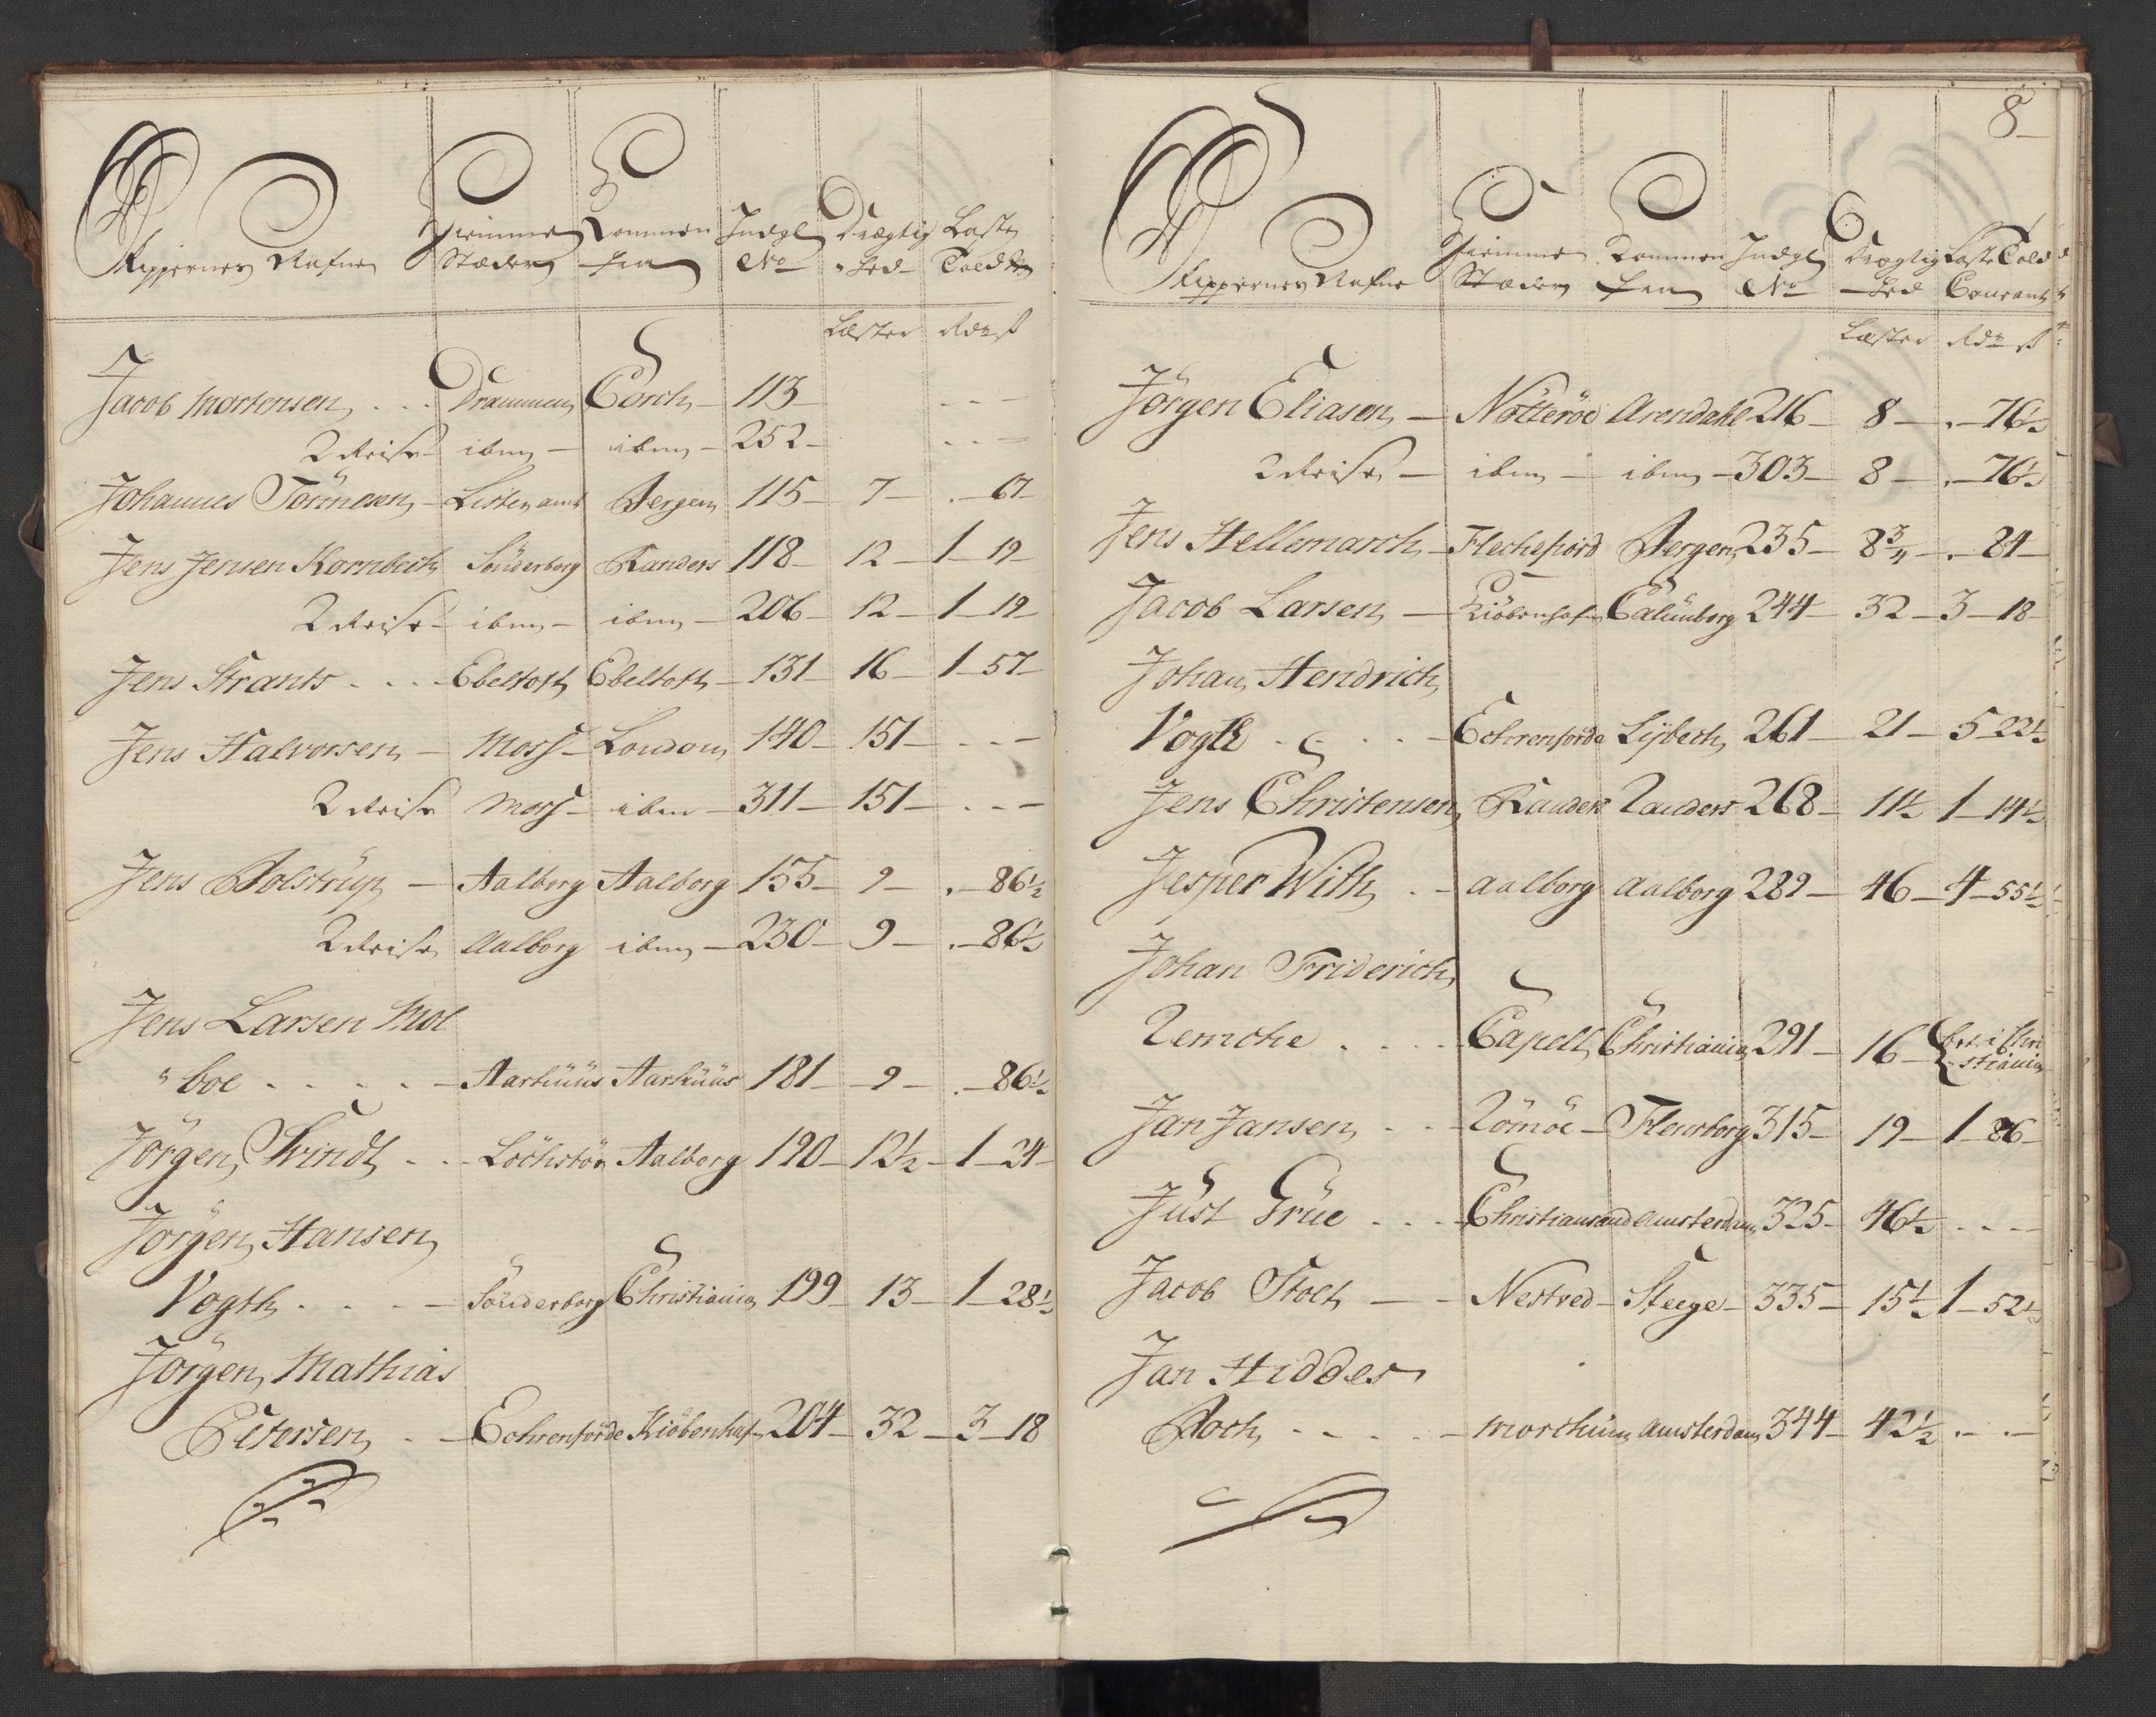 Skippernes Nafne Hiemme Stæder Kommen fra Indgl No Drægtighed Laste Told
Læster Rdr ß
Jacob Mortensen . . . Drammen Corck 113 - - -
2 Reise ibm ibm 252 - - -
Johannes Tönnesen Lister amt Bergen 115 7 . 67
Jens Jensen Kornbeck Sönderborg Randers 118 12 1 19
2 Reise ibm ibm 206 12 1 19
Jens Strants . . . Ebeltoft Ebeltoft 131 16 1 57
Jens Halvorsen Moss London 140 151 - - -
2 Reise Moss ibm 311 151 - - -
Jens Bolstrup Aalborg Aalborg 155 9 . 86½
2 Reise Aalborg ibm 230 9 . 86½
Jens Larsen Mol
"boe . . . . . Aarhüüs Aarhüüs 181 9 . 86½
Jörgen Svindt . . . Löchstör Aalborg 190 12½ 1 24
Jörgen Hansen
Vogth . . . . Sönderborg Christiania 199 13 1 28½
Jörgen Mathias
Petersen . . Echrenförde Kiöbenhafn 204 32 3 18
8
Skippernes Nafne Hiemme Stæder Kommen fra Indgl No Drægtighed Laste Told Courant
Læster Rdr ß
Jörgen Eliasen Nötteröe Arendahl 216 8 . 76½
2 Reise ibm ibm 303 8 . 76½
Jens Hellemarch Flechefiord Bergen 235 8¾ . 84
Jacob Larsen Kiöbenhafn Calünborg 244 32 3 18
Johan Hendrich
Vogtt . . . . Echrenforde Lÿbech 261 21 5 22½
Jens Christensen Randers Randers 268 11½ 1 14½
Jesper With . . Aalborg Aalborg 289 46 4 55½
Johan Friderich
Remche . . . . Capell Christiania 291 16 bet i Chri
stiania
Jan Jansen . . . Römöe Flensborg 315 19 1 86
Just Grüe . . . Christiansand Amsterdam 325 46½ . . .
Jacob Stoch Nestved Steege 335 15½ 1 52½
Jan Hiddes
Boch . . . . . Morsthüm Amsterdam 344 42½ . - . -